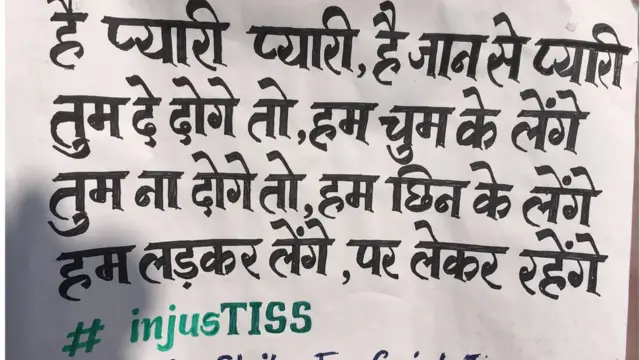 है प्यारी प्यारी, है जान से प्यारी
तुम दे दोगे तो, हम चुम के लेंगे
तुम ना दोगे तो, हम छिन के लेंगे
हम लड़कर लेंगे, पर लेकर रहेंगे
# injusTISS